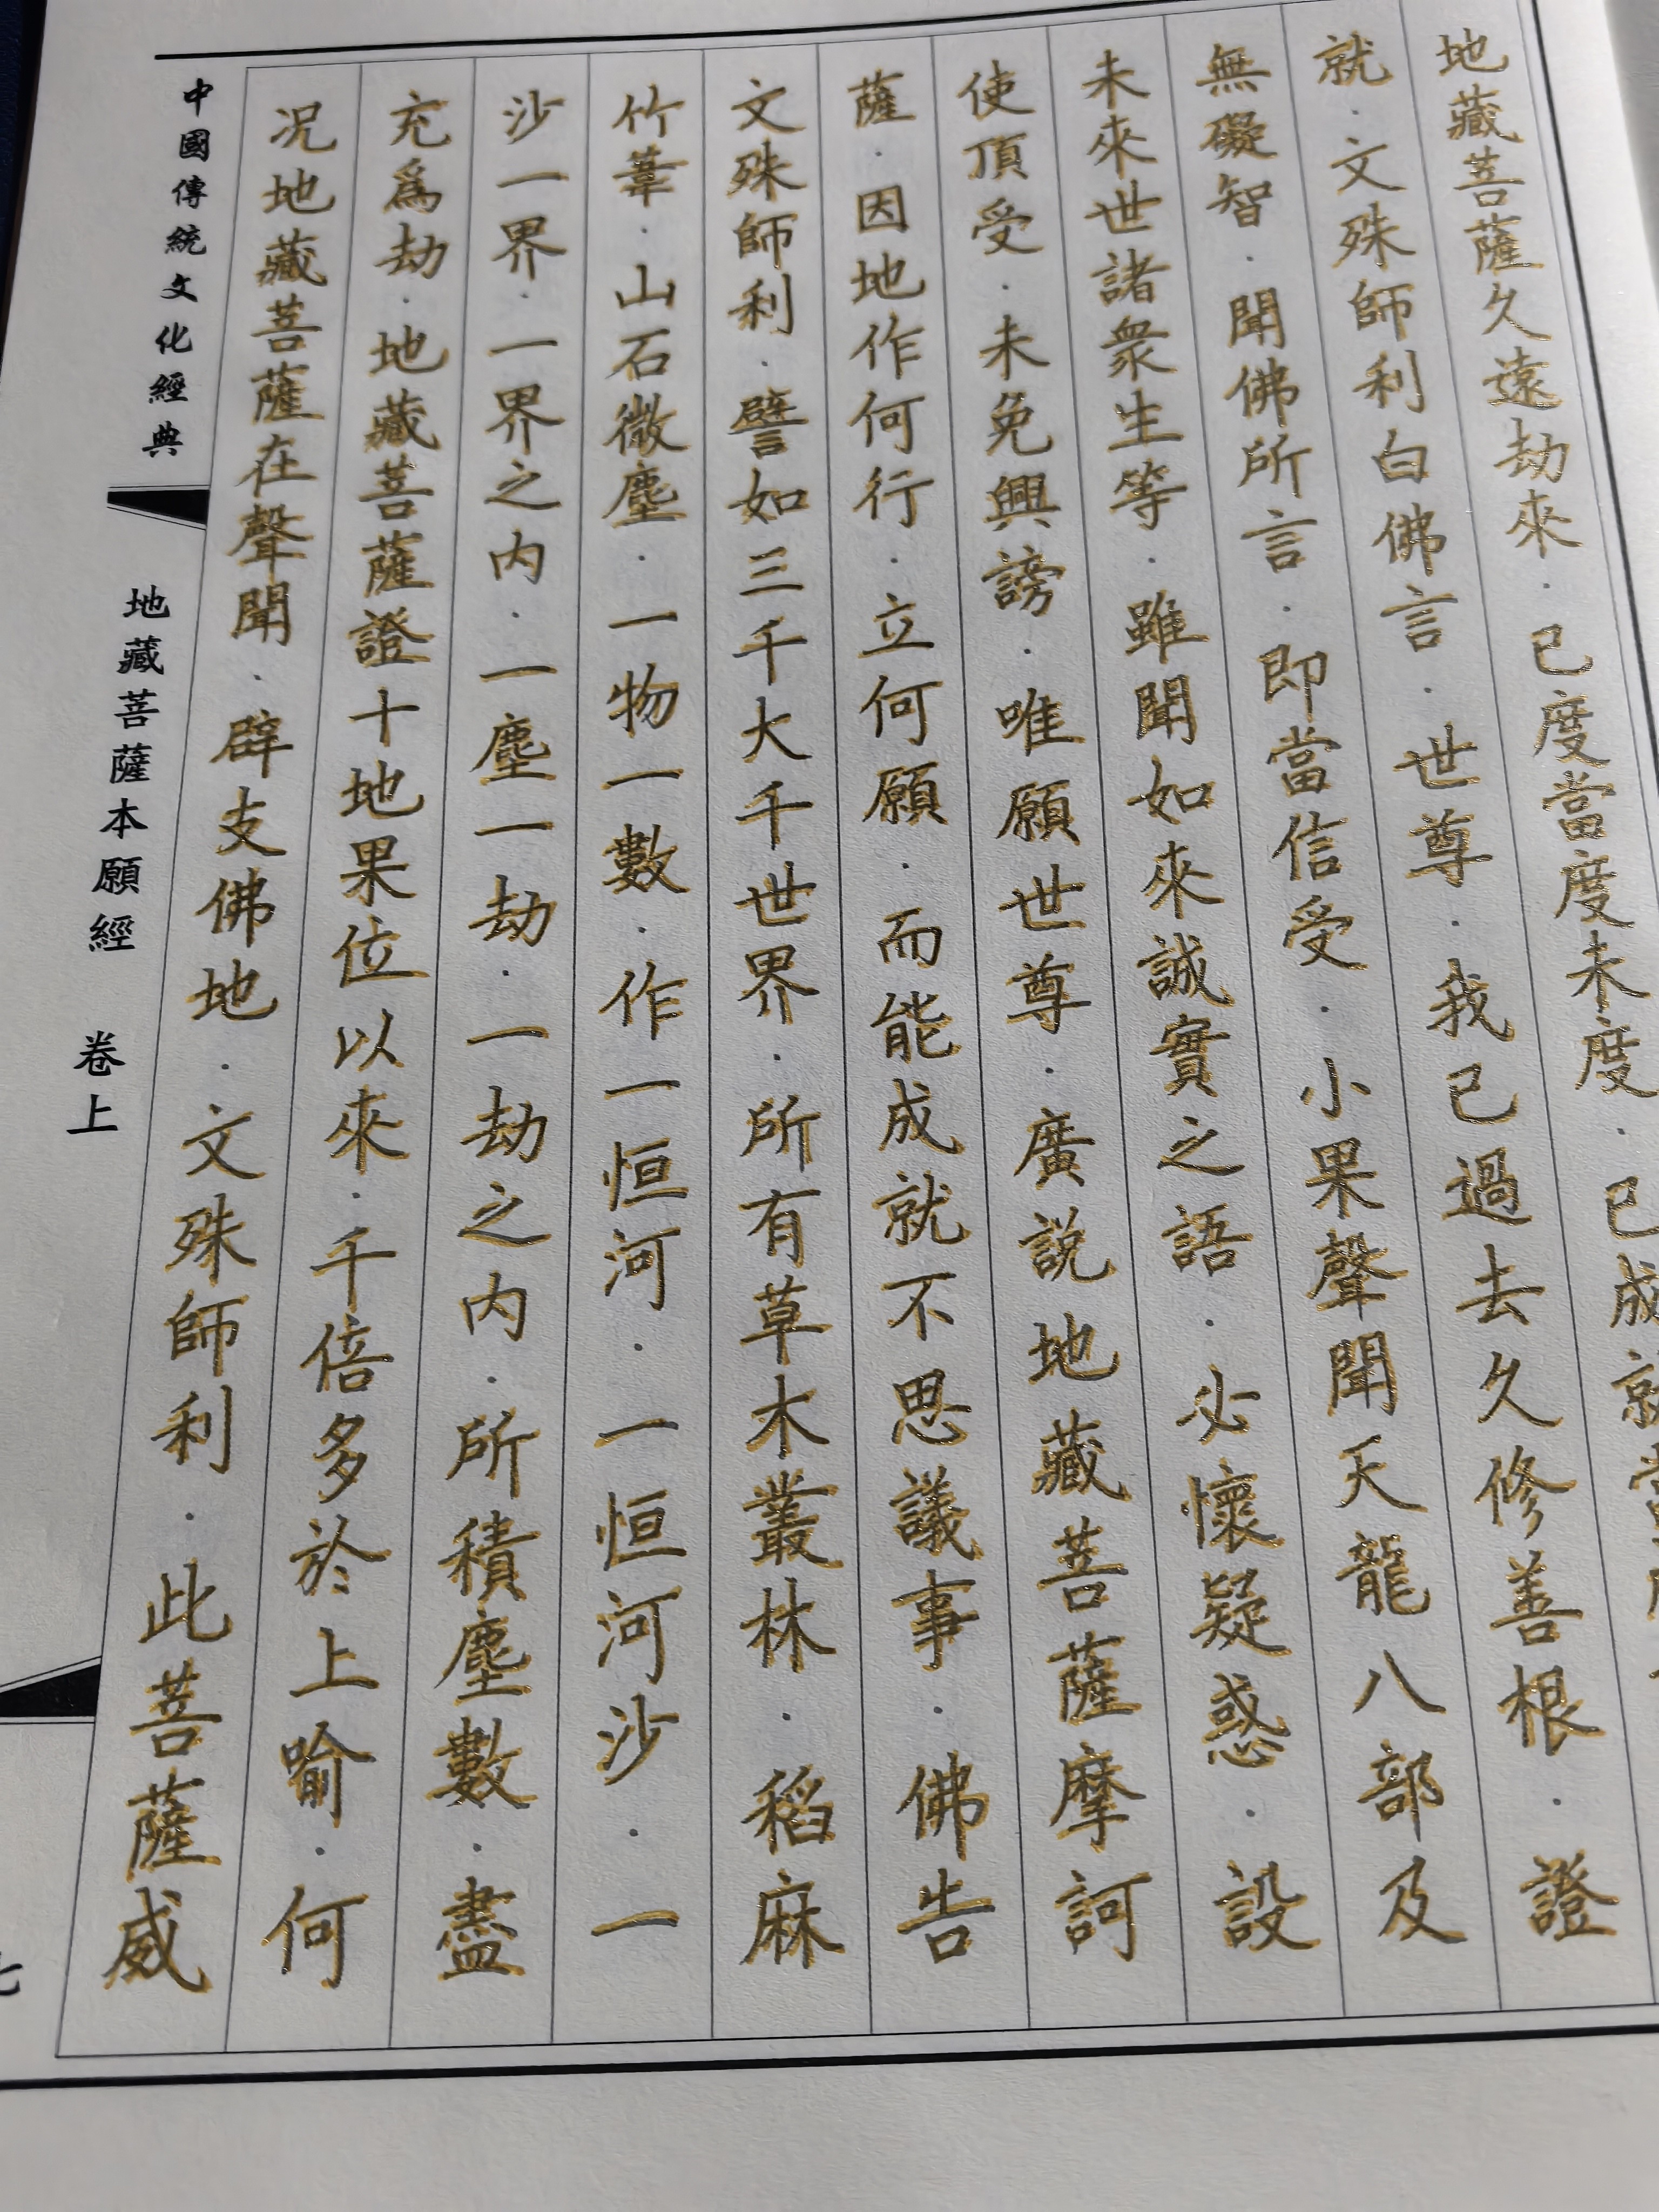 地藏菩薩久遠劫來．已度當度未度．已成就當
就．文殊師利白佛言．世尊．我已過去久修善根．證
無礙智．聞佛所言．即當信受．小果聲聞天龍八部及
未來世諸衆生等．雖聞如來誠實之語．必懷疑惑．設
使頂受．未免興謗．唯願世尊．廣說地藏菩薩摩訶
薩．因地作何行．立何願．而能成就不思議事．佛告
文殊師利．譬如三千大千世界．所有草木叢林．稻麻
竹葦．山石微塵．一物一數．作一恒河．一恒河沙．一
沙一界．一界之內．一塵一劫．一劫之內．所積塵數．盡
充爲劫．地藏菩薩證十地果位以來．千倍多於上喻．何
況地藏菩薩在聲聞．辟支佛地．文殊師利．此菩薩威
中國傳統文化經典
地藏菩薩本願經 卷上